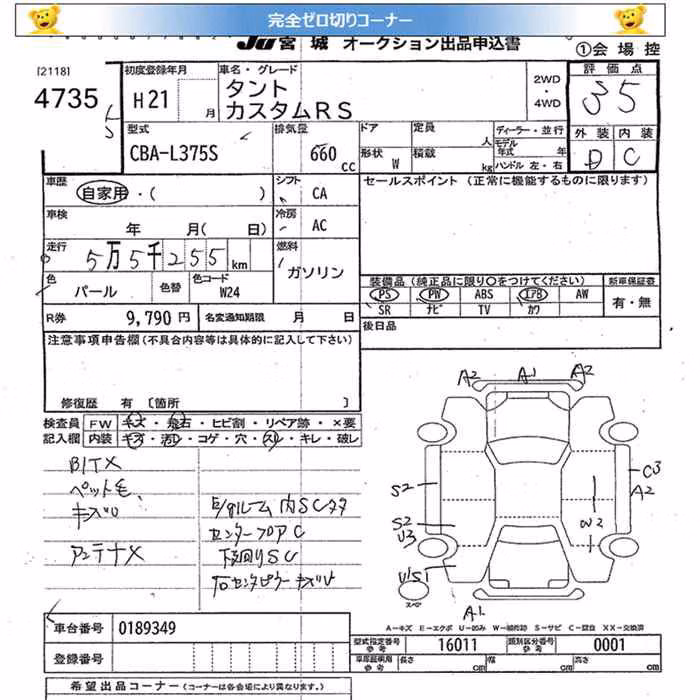 完全ゼロ切りコーナー
JU宮城 オークション出品申込書 ①会場控
[2118] 初度登録年月 車名・グレード 2WD・4WD 評価点
4735 H21 月 タント 35
カスタムRS
外装 内装
D C
型式 排気量 ドア 定員 人 ディーラー・並行
CBA-L375S 660cc 形状 W 積載 kg モデル年式 年
ハンドル 左・右
車歴 自家用・( ) シフト CA セールスポイント (正常に機能するものに限ります)
車検 年 月( 日) 冷房 AC
走行 5万5千255km 燃料 ガソリン
色 パール 色替 色コード W24
装備品 (純正品に限り〇をつけてください) 新車保証書
PS PW ABS エアB AW 有・無
SR ナビ TV カワ
R券 9,790円 名変通知期限 月 日 後日品
注意事項申告欄(不具合内容等は具体的に記入して下さい)
修復歴 有 〔箇所 〕
検査員 FW キズ・飛石・ヒビ割・リペア跡・×要
記入欄 内装 キズ・汚レ・コゲ・穴・スレ・キレ・破レ
BITX
ペット毛
キズU
アンテナX
内SCサタ
センターフロアC
下回りSC
右センタピラーキズU
A2 A1 A2
C3
A2
S2
S2
U3
W2
U1S1
スペア
A1
A-キズ E-エクボ U-凹み W-補修跡 S-サビ C-腐食 XX-交換済
車台番号 0189349
登録番号
型式指定番号 参考 16011 類別区分番号 参考 0001
車庫証明用 参考 長さ cm 幅 cm 高さ cm
希望出品コーナー (コーナーは各会場により異なります。)